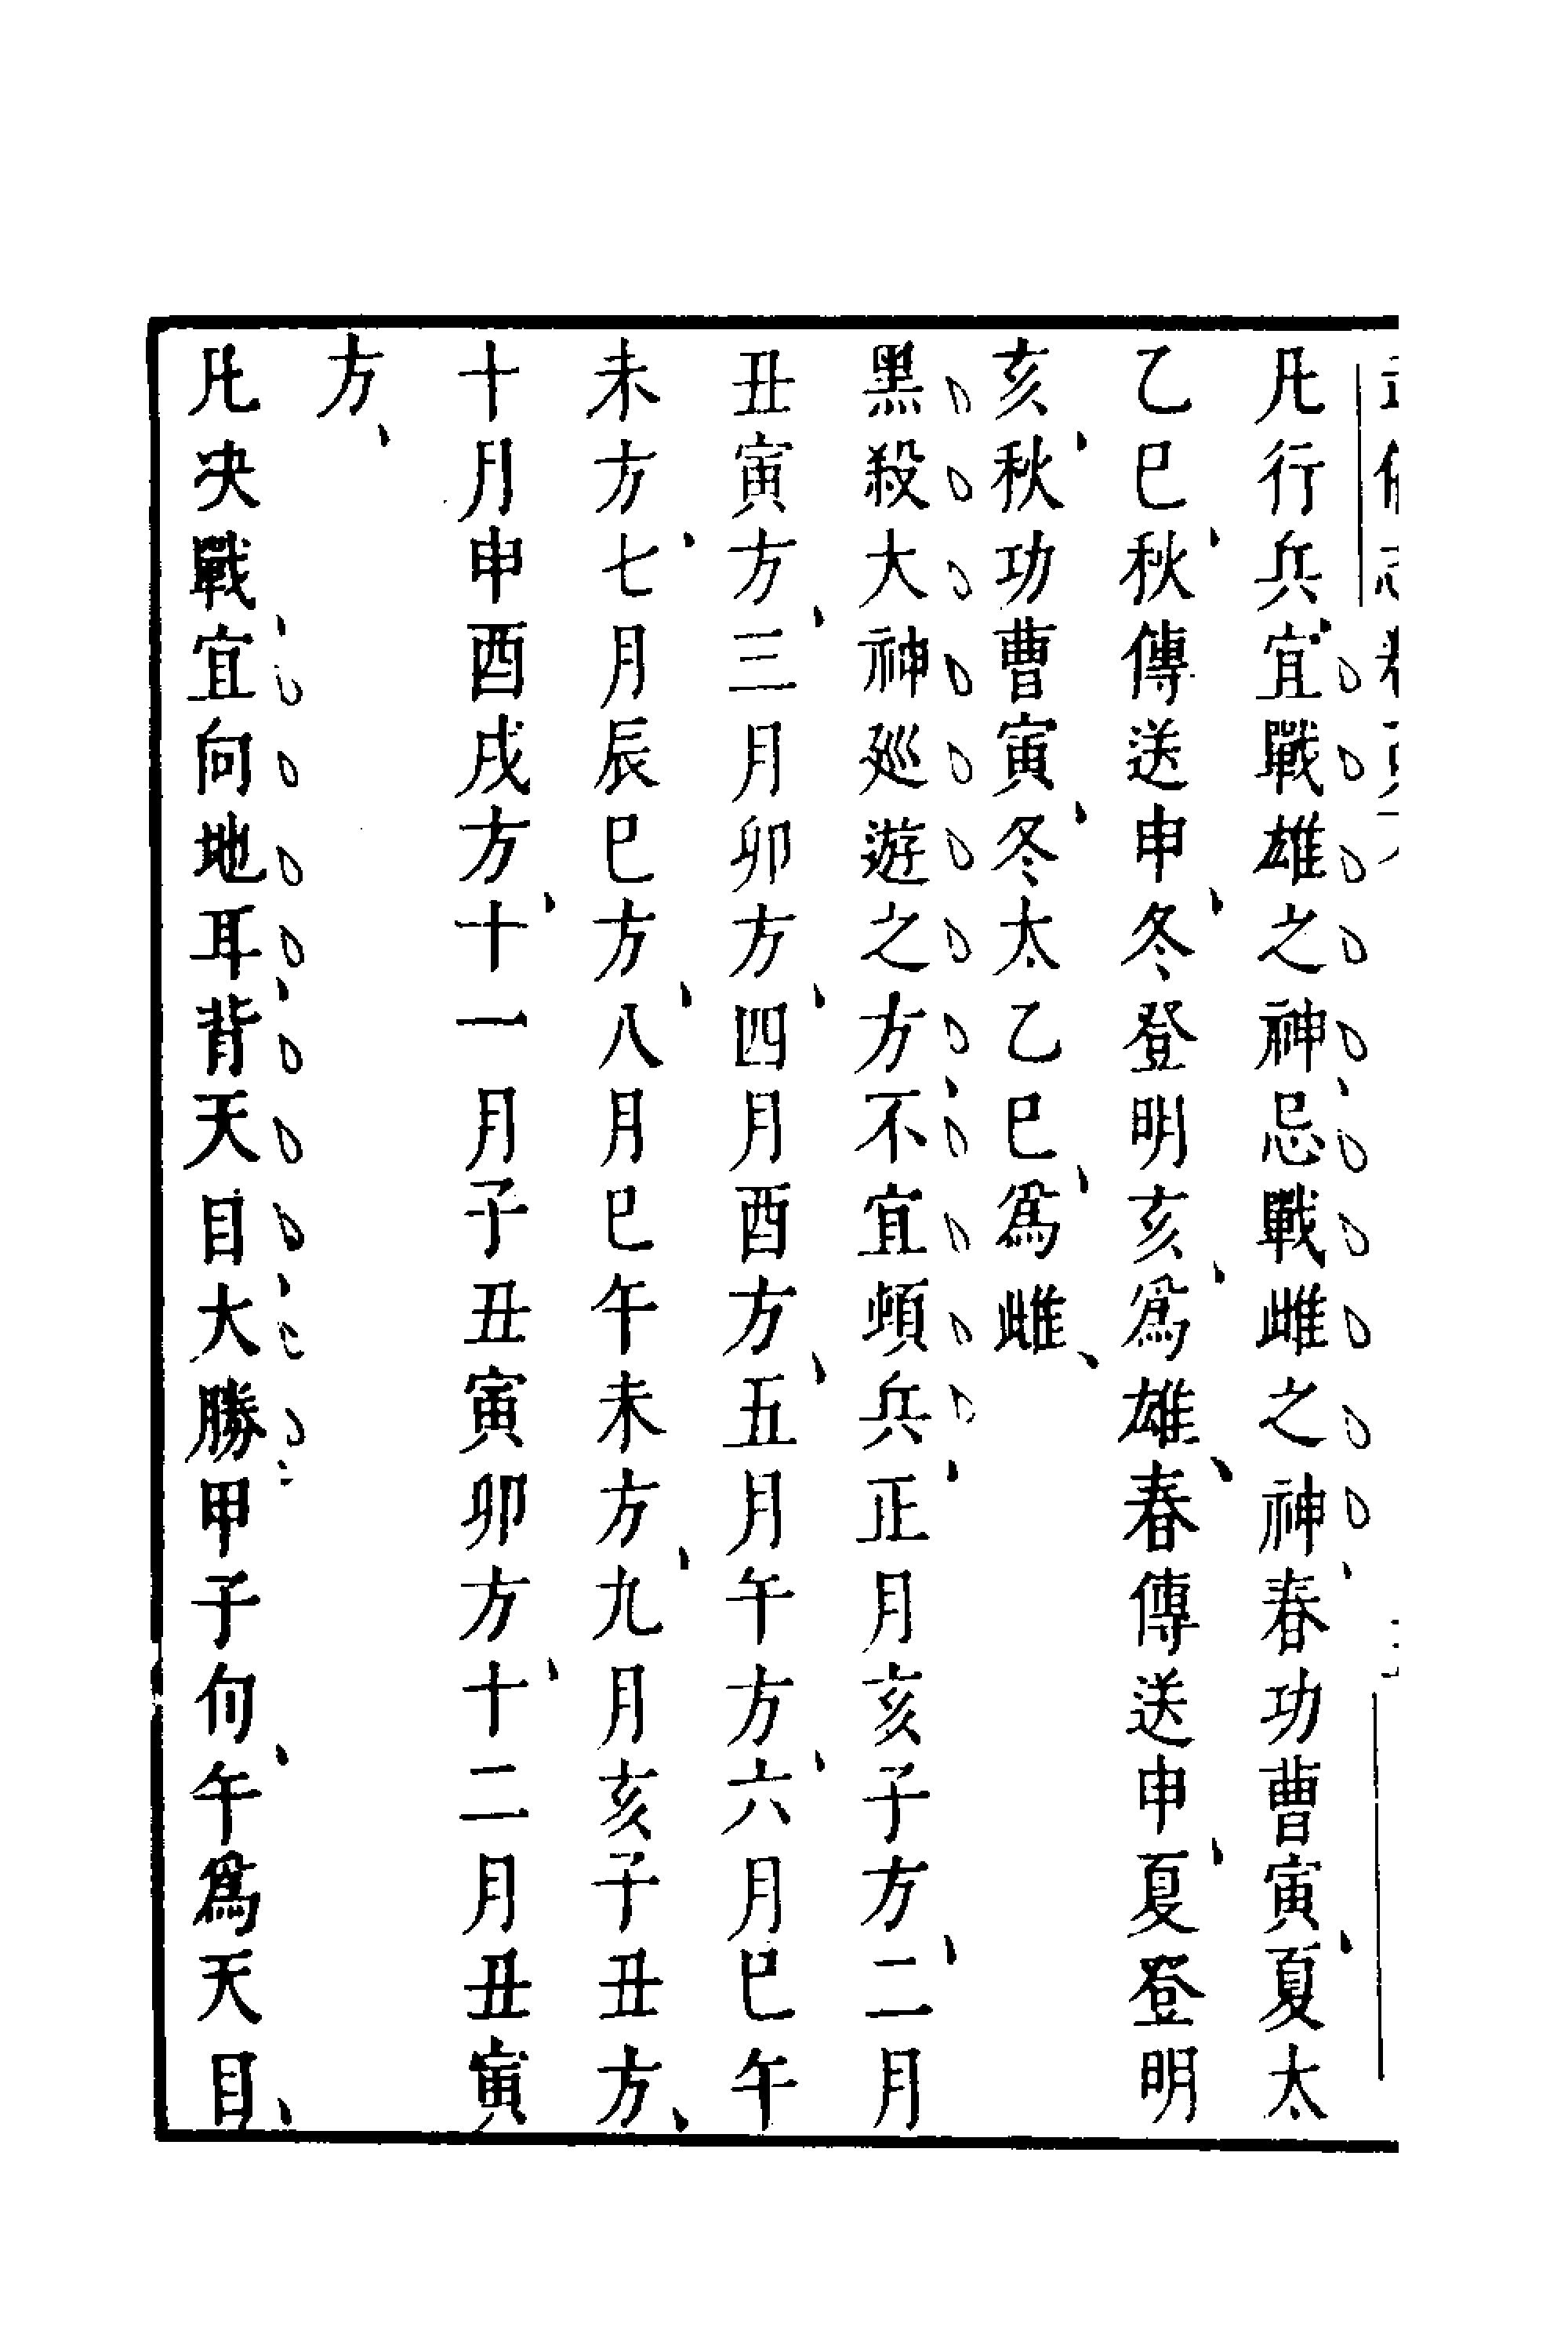 凡行兵宜戰雄之神忌戰雌之神春功曹寅夏太
乙巳秋傳送申冬登明亥爲雄春傳送申夏登明
亥秋功曹寅冬太乙巳爲雌
黑殺大神廵遊之方不宜頓兵正月亥子方二月
丑寅方三月卯方四月酉方五月午方六月巳午
未方七月辰巳方八月巳午未方九月亥子丑方
十月申酉戌方十一月子丑寅卯方十二月丑寅
方
凡决戰宜向地耳背天目大勝甲子旬午爲天目